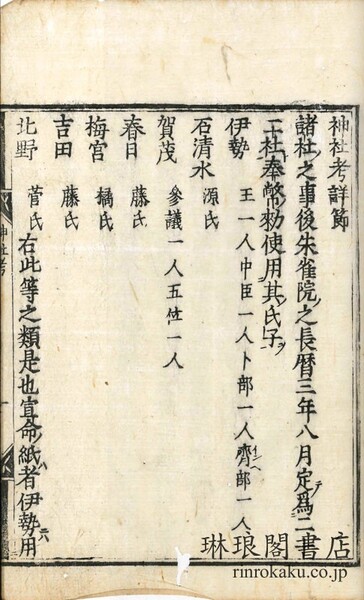 神社考詳節
諸社之事後朱雀院之長暦三年八月定爲二
十二社奉幣勅使用其氏子
伊勢 王一人中臣一人卜部一人齊部一人
石清水 源氏
賀茂 參議一人五位一人
春日 藤氏
梅宮 橘氏
吉田 藤氏
北野 菅氏右此等之類是也宣命紙者伊勢用
神社考
琳琅閣書店
rinrokaku.co.jp